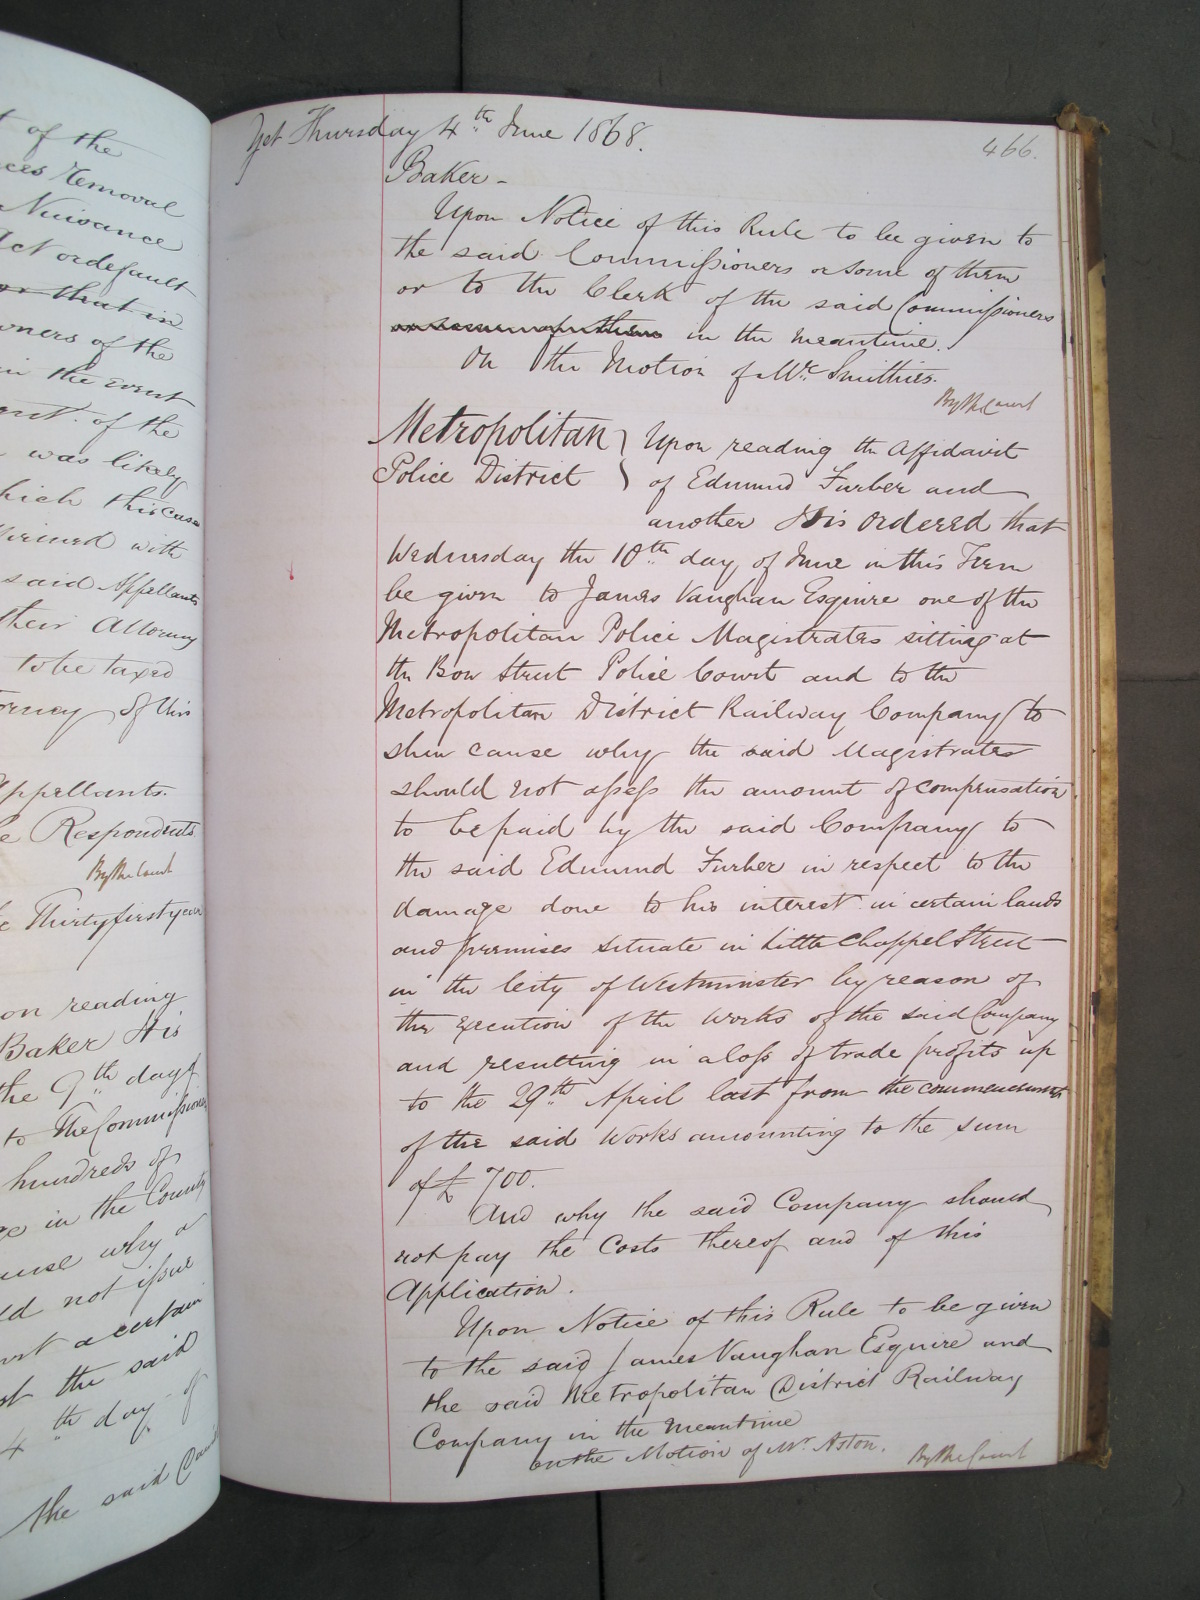 t of the
ces Removal
Nuisance
Act or default
or that in
wners of the
in the event
ent. of the
was likely
hich this case
firmed with
said Appellants
their Attorney
to be taxed
orney of this
Appellants.
e Respondents
By the Court
e Thirty first year
on reading
Baker It is
the 9th day of
to the Commissioners
hundreds of
ge in the County
ause why a
ld not issue
a certain
the said
4th day of
the said
Yet Thursday 4th June 1868.
466.
Baker -
Upon Notice of this Rule to be given to
the said Commissioners or some of them
or to the Clerk of the said Commissioners
or some of them in the meantime.
On the Motion of Mr. Smithies.
By the Court
Metropolitan } Upon reading the Affidavit
Police District } of Edmund Furber and
another It is ordered that
Wednesday the 10th day of June in this Term
be given to James Vaughan Esquire one of the
Metropolitan Police Magistrates sitting at
the Bow Street Police Court and to the
Metropolitan District Railway Company to
shew cause why the said Magistrates
should not assess the amount of compensation
to be paid by the said Company to
the said Edmund Furber in respect to the
damage done to his interest in certain lands
and premises situate in Little Chappel Street
in the City of Westminster by reason of
the Execution of the Works of the said Company
and resulting in a loss of trade profits up
to the 29th April last from the commencement
of the said Works amounting to the sum
of £700.
And why the said Company should
not pay the Costs thereof and of this
Application.
Upon Notice of this Rule to be given
to the said James Vaughan Esquire and
the said Metropolitan District Railway
Company in the meantime
on the Motion of Mr. Aston.
By the Court